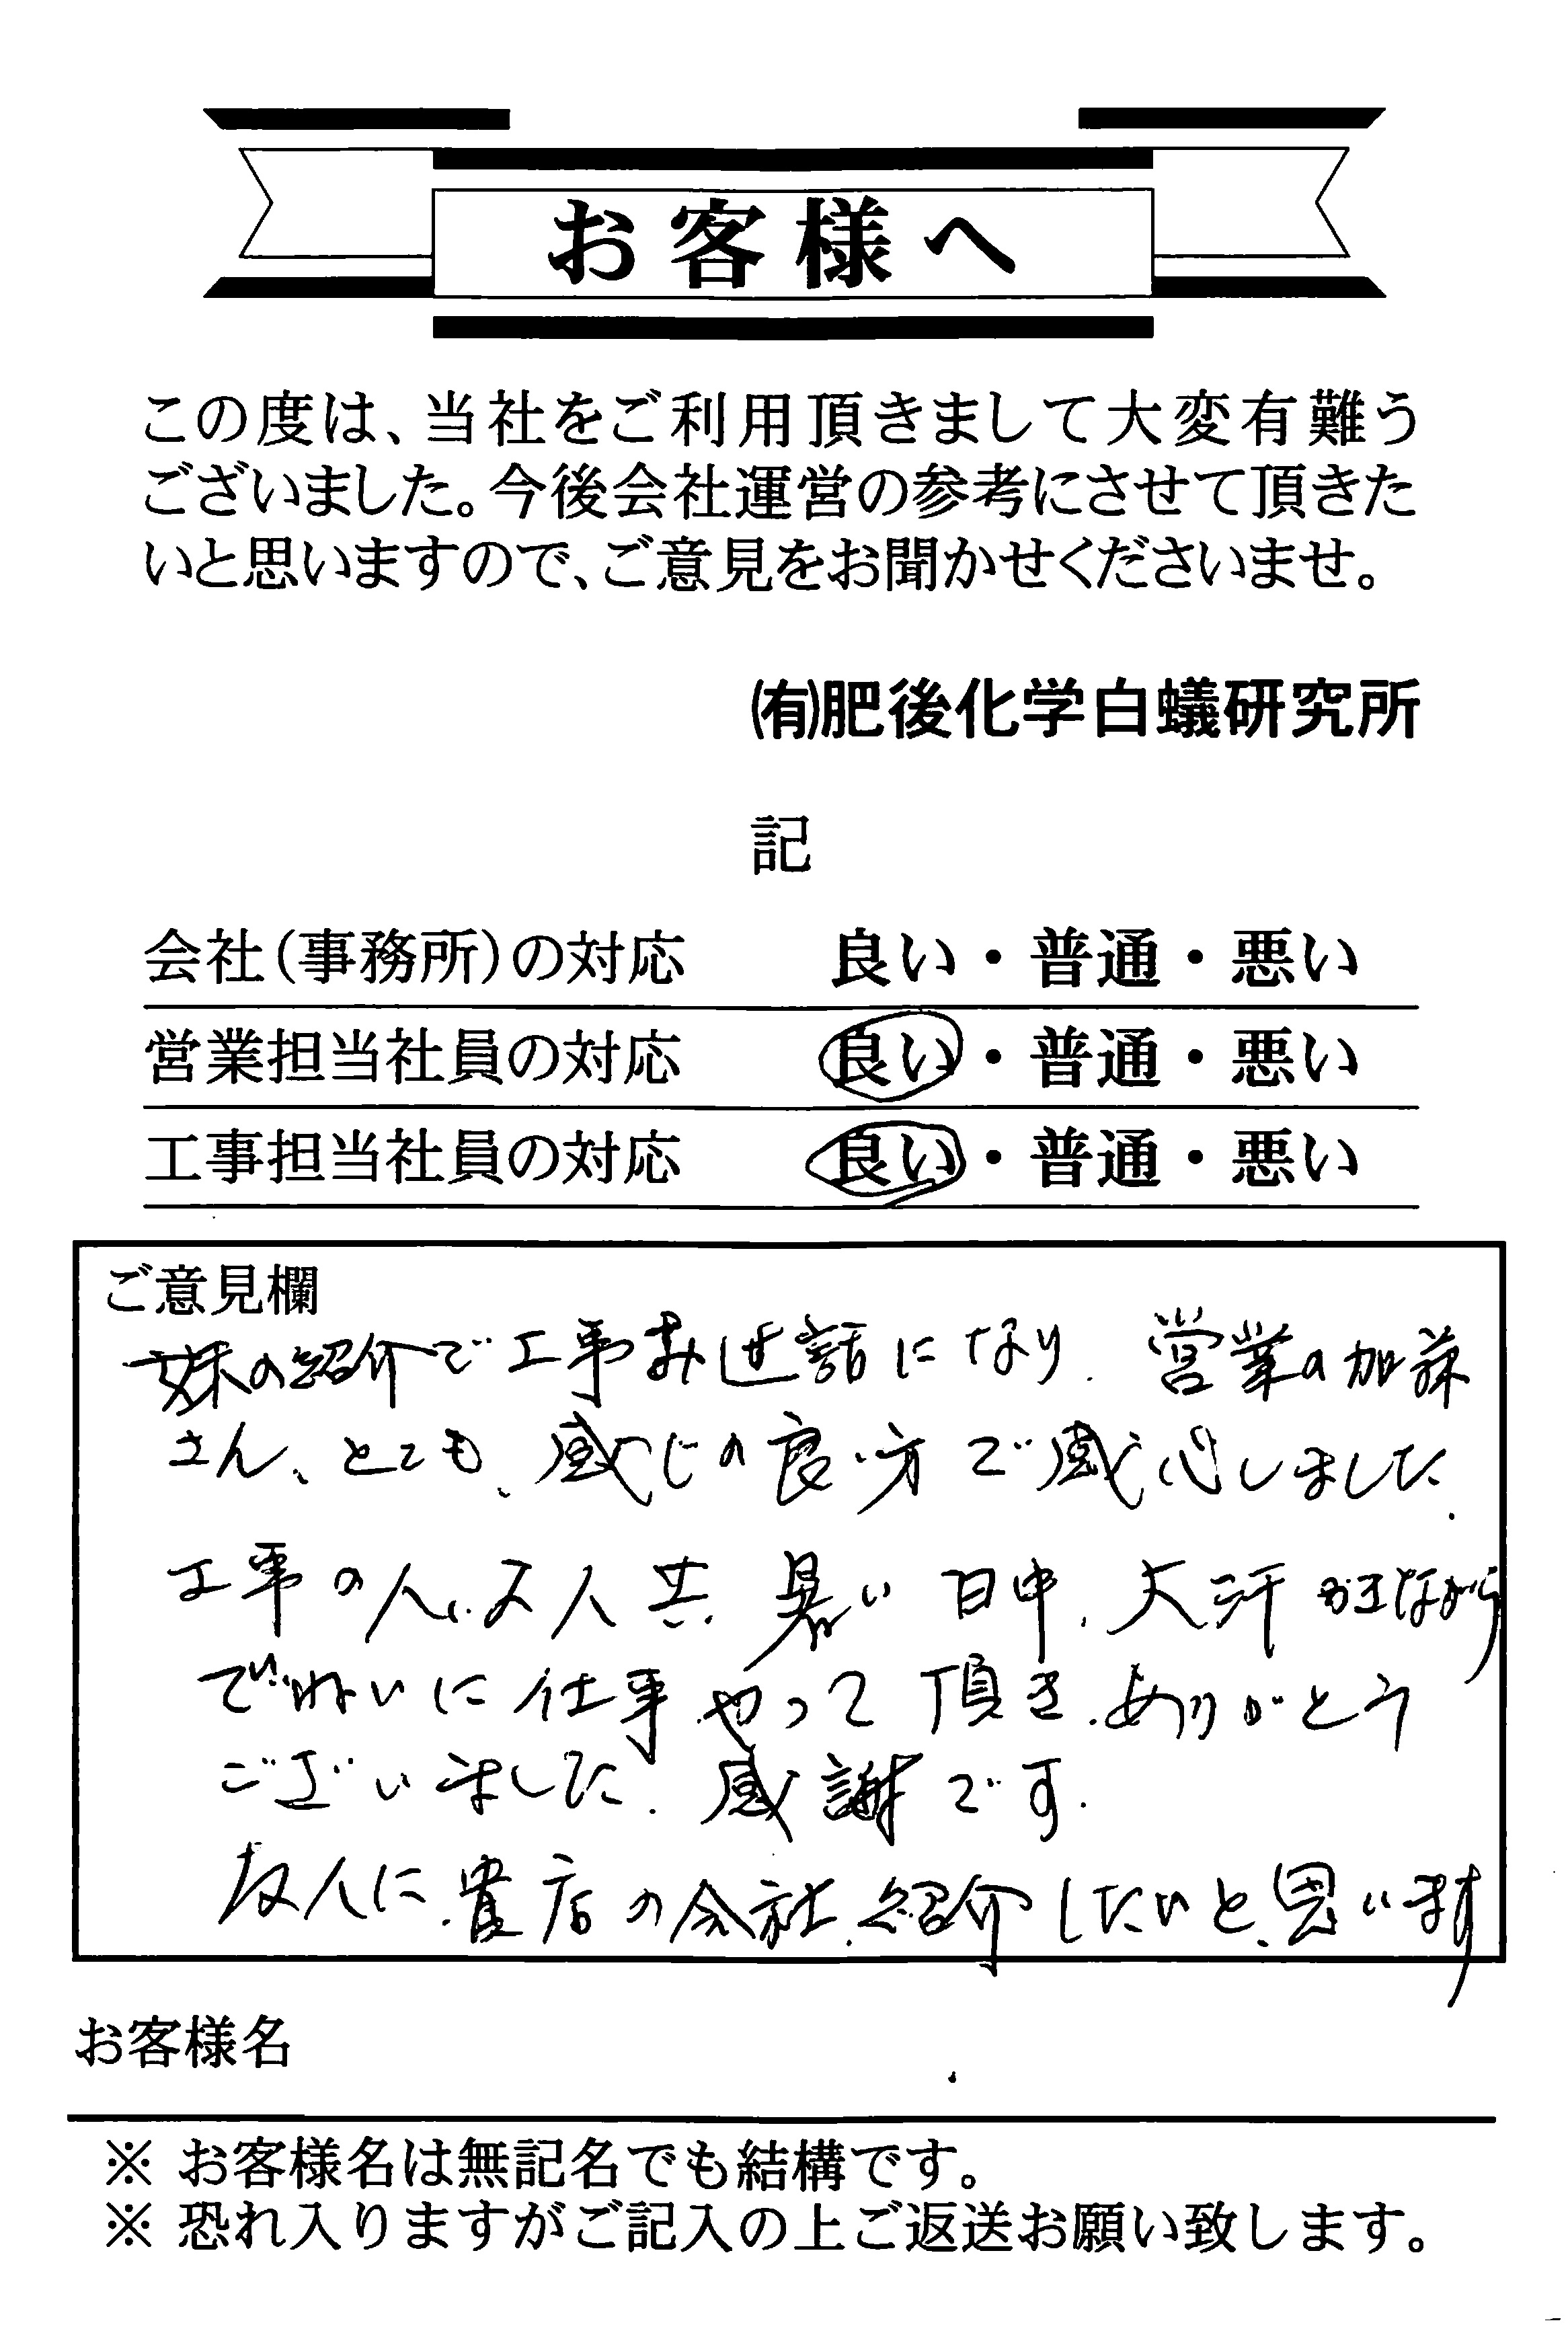 お客様へ
この度は、当社をご利用頂きまして大変有難う
ございました。今後会社運営の参考にさせて頂きた
いと思いますので、ご意見をお聞かせくださいませ。
㈲肥後化学白蟻研究所
記
会社(事務所)の対応 良い・普通・悪い
営業担当社員の対応 良い・普通・悪い
工事担当社員の対応 良い・普通・悪い
ご意見欄
妹の紹介で工事お世話になり、営業の加藤
さん、とても、感じの良い方で感心しました.
工事の人、共、暑い日中、大汗かきながら
でいねいに仕事やって頂き、ありがとう
ございました.感謝です.
友人に、貴店の会社、紹介したいと、思います
お客様名
※ お客様名は無記名でも結構です。
※ 恐れ入りますがご記入の上ご返送お願い致します。